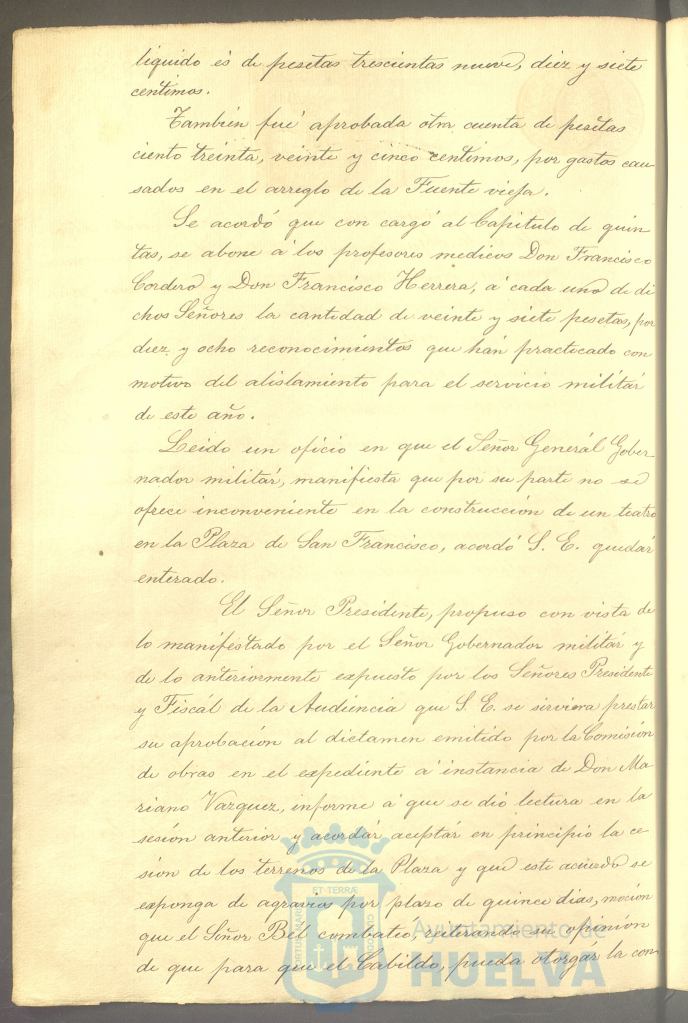 liquido és de pesetas trescientas nueve, diez y siete
centimos.
También fué aprobada otra cuenta de pesetas
ciento treinta, veinte y cinco centimos, por gastos cau-
sados en el arreglo de la Fuente vieja.
Se acordó que con cargo al Capitulo de quin-
tas, se abone á los profesores medicos Don Francisco
Cordero y Don Francisco Herrera, á cada uno de di
chos Señores la cantidad de veinte y siete pesetas, por
diez y ocho reconocimientos que hán practicado con
motivo del alistamiento para el servicio militár
de este año.
Leido un oficio en que el Señor Generál Gober-
nador militár, manifiesta que por su parte no se
ofrece inconveniente en la construcción de un teatro
en la Plaza de San Francisco, acordó S. E. quedár
enterado.
El Señor Presidente, propuso con vista de
lo manifestado por el Señor Gobernador militár y
de lo anteriormente expuesto por los Señores Presidente
y Fiscál de la Audiencia que S. E. se sirviera prestar
su aprobación al dictamen emitido por la Comisión
de obras en el expediente á instancia de Don Ma-
riano Vazquez, informe á que se dió lectura en la
sesión anterior y acordár aceptár en principio la ce-
sion de los terrenos de la Plaza y que este acuerdo se
exponga de agravios por plazo de quince dias, moción
que el Señor Bél combatió, reiterando su opinión
de que para que el Cabildo, pueda otorgár la con-
ET TERRÆ
PORTUS MARIS
CUSTODIA
Ayuntamiento de
HUELVA